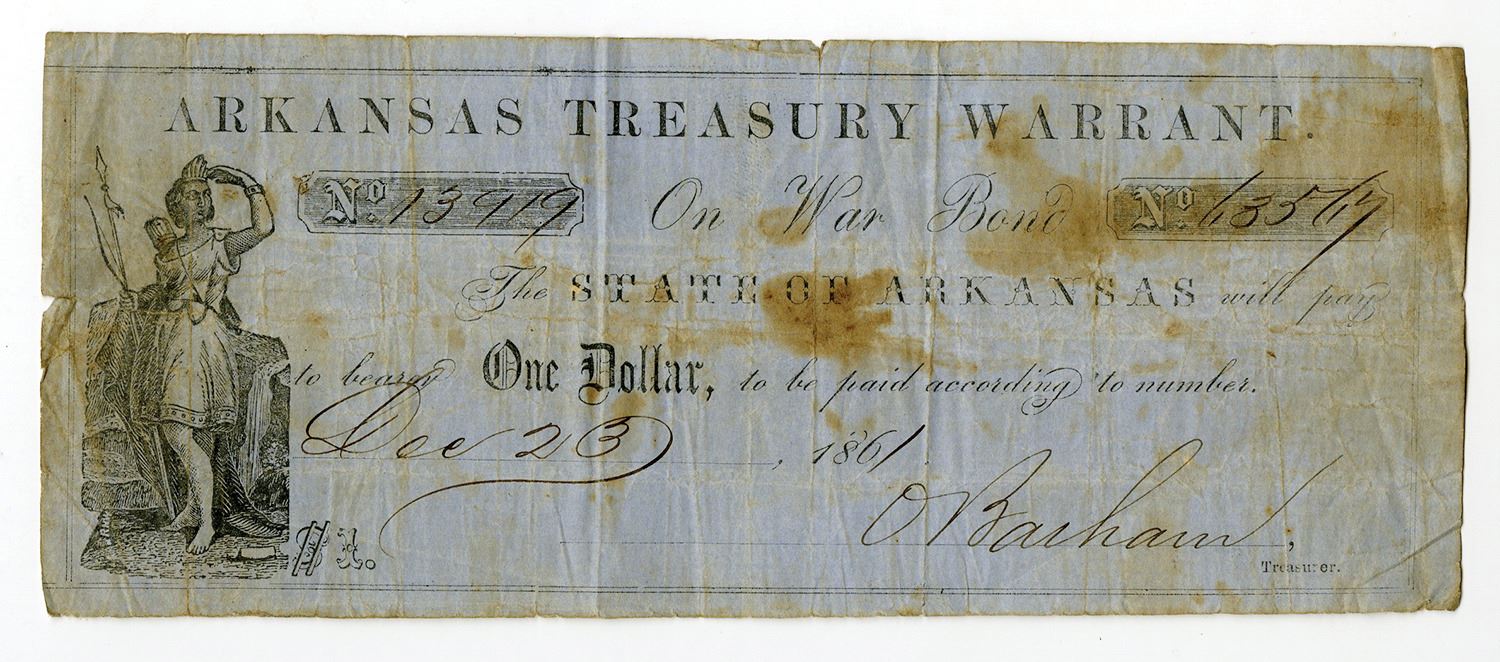 ARKANSAS TREASURY WARRANT.
No. 13919 On War Bond No
The STATE OF ARKANSAS will pay
to bearer One Dollar, to be paid according to number.
Dec 23, 1861.
O Basham,
$1. Treasurer.